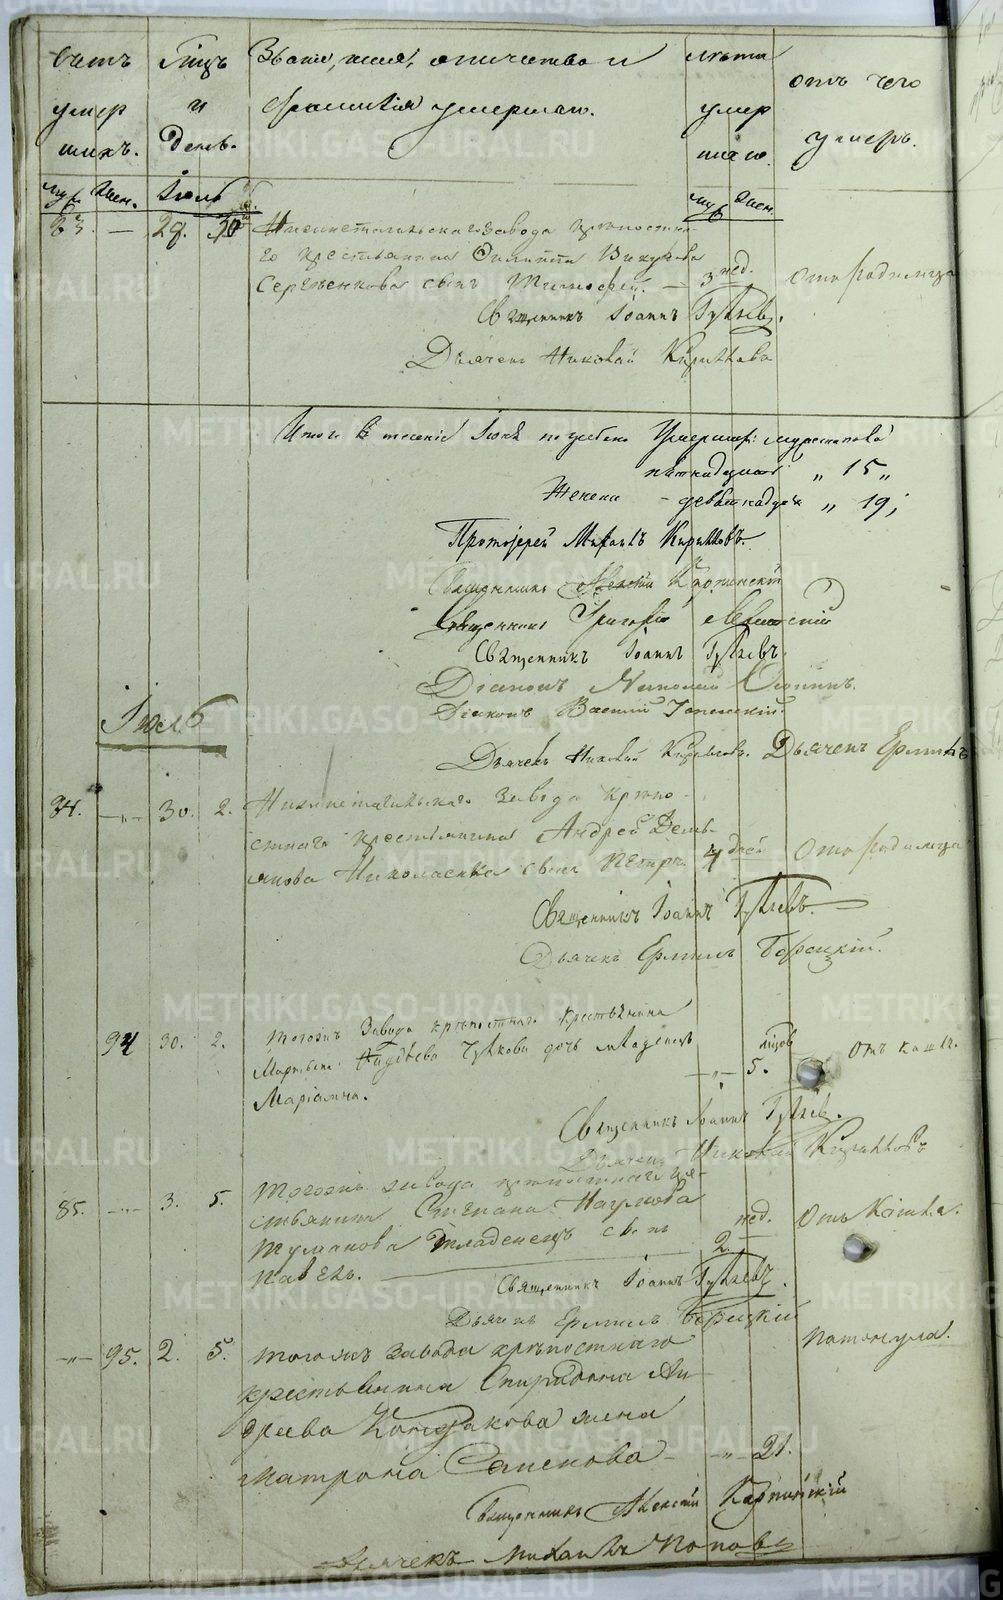 счетъ Мцъ Званіе, имя, отчество и лѣта
умер и фамилія умершаго. умер отъ чего
шихъ. день. шаго. умеръ.
муж. жен. Іюль муж. жен.
83. — 29. 30 Нижнетагильскаго завода крѣпостна-
го крестьянина Филиппа Викулова
Сергѣенкова сынъ Тимофей. — 3 нед. Отъ родимца
Священникъ Іоаннъ
Дьячекъ Николай Кирилловъ
Итого въ теченіе Іюня погребено умершихъ: мужеска пола
пятнадцать „ 15 „
Женска – девятнадцать „ 19;
Протоіерей Михаилъ Кирилловъ.
Священникъ Алексій Карпинскій
Священникъ Григорій
Священникъ Іоаннъ
Діаконъ Николай
Діаконъ Василій
Дьячекъ Николай Кирилловъ. Дьячекъ Ермилъ
Іюль
34. —„— 30. 2. Нижнетагильскаго завода крѣпо-
стнаго крестьянина Андрея Демь-
янова Николаенка сынъ Петръ 4 дней Отъ родимца
Священникъ Іоаннъ
Дьячекъ Ермилъ Борецкій.
94 30. 2. тогожъ завода крѣпостнаго крестьянина
Чудкова дочь младенецъ —„— 5. Отъ кашля.
Маріамна.
Священникъ Іоаннъ
Дьячекъ Николай Кирилловъ
85. —„— 3. 5. тогожъ завода крѣпостнаго кре-
стьянина Степана Наумова
Туманова младенецъ сынъ 2 нед. Отъ кашля.
Павелъ.
Священникъ Іоаннъ
Дьячекъ Ермилъ Борецкій
—„— 95. 2. 5. тогожъ завода крѣпостнаго Потонула.
крестьянина Спиридона Ан-
дреева Кондакова жена
Матрона Семенова —„— 21.
Священникъ Алексій Карпинскій
Дьячекъ Михаилъ Поповъ
METRIKI.GASO-URAL.RU